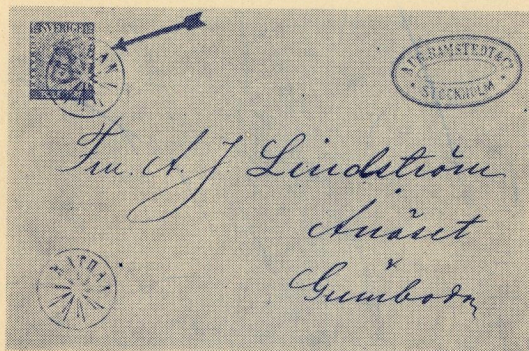 SVERIGE
AUG. RAMSTEDT & Co
STOCKHOLM
Fru. A. J. Lindström
Anäset
Gumboda